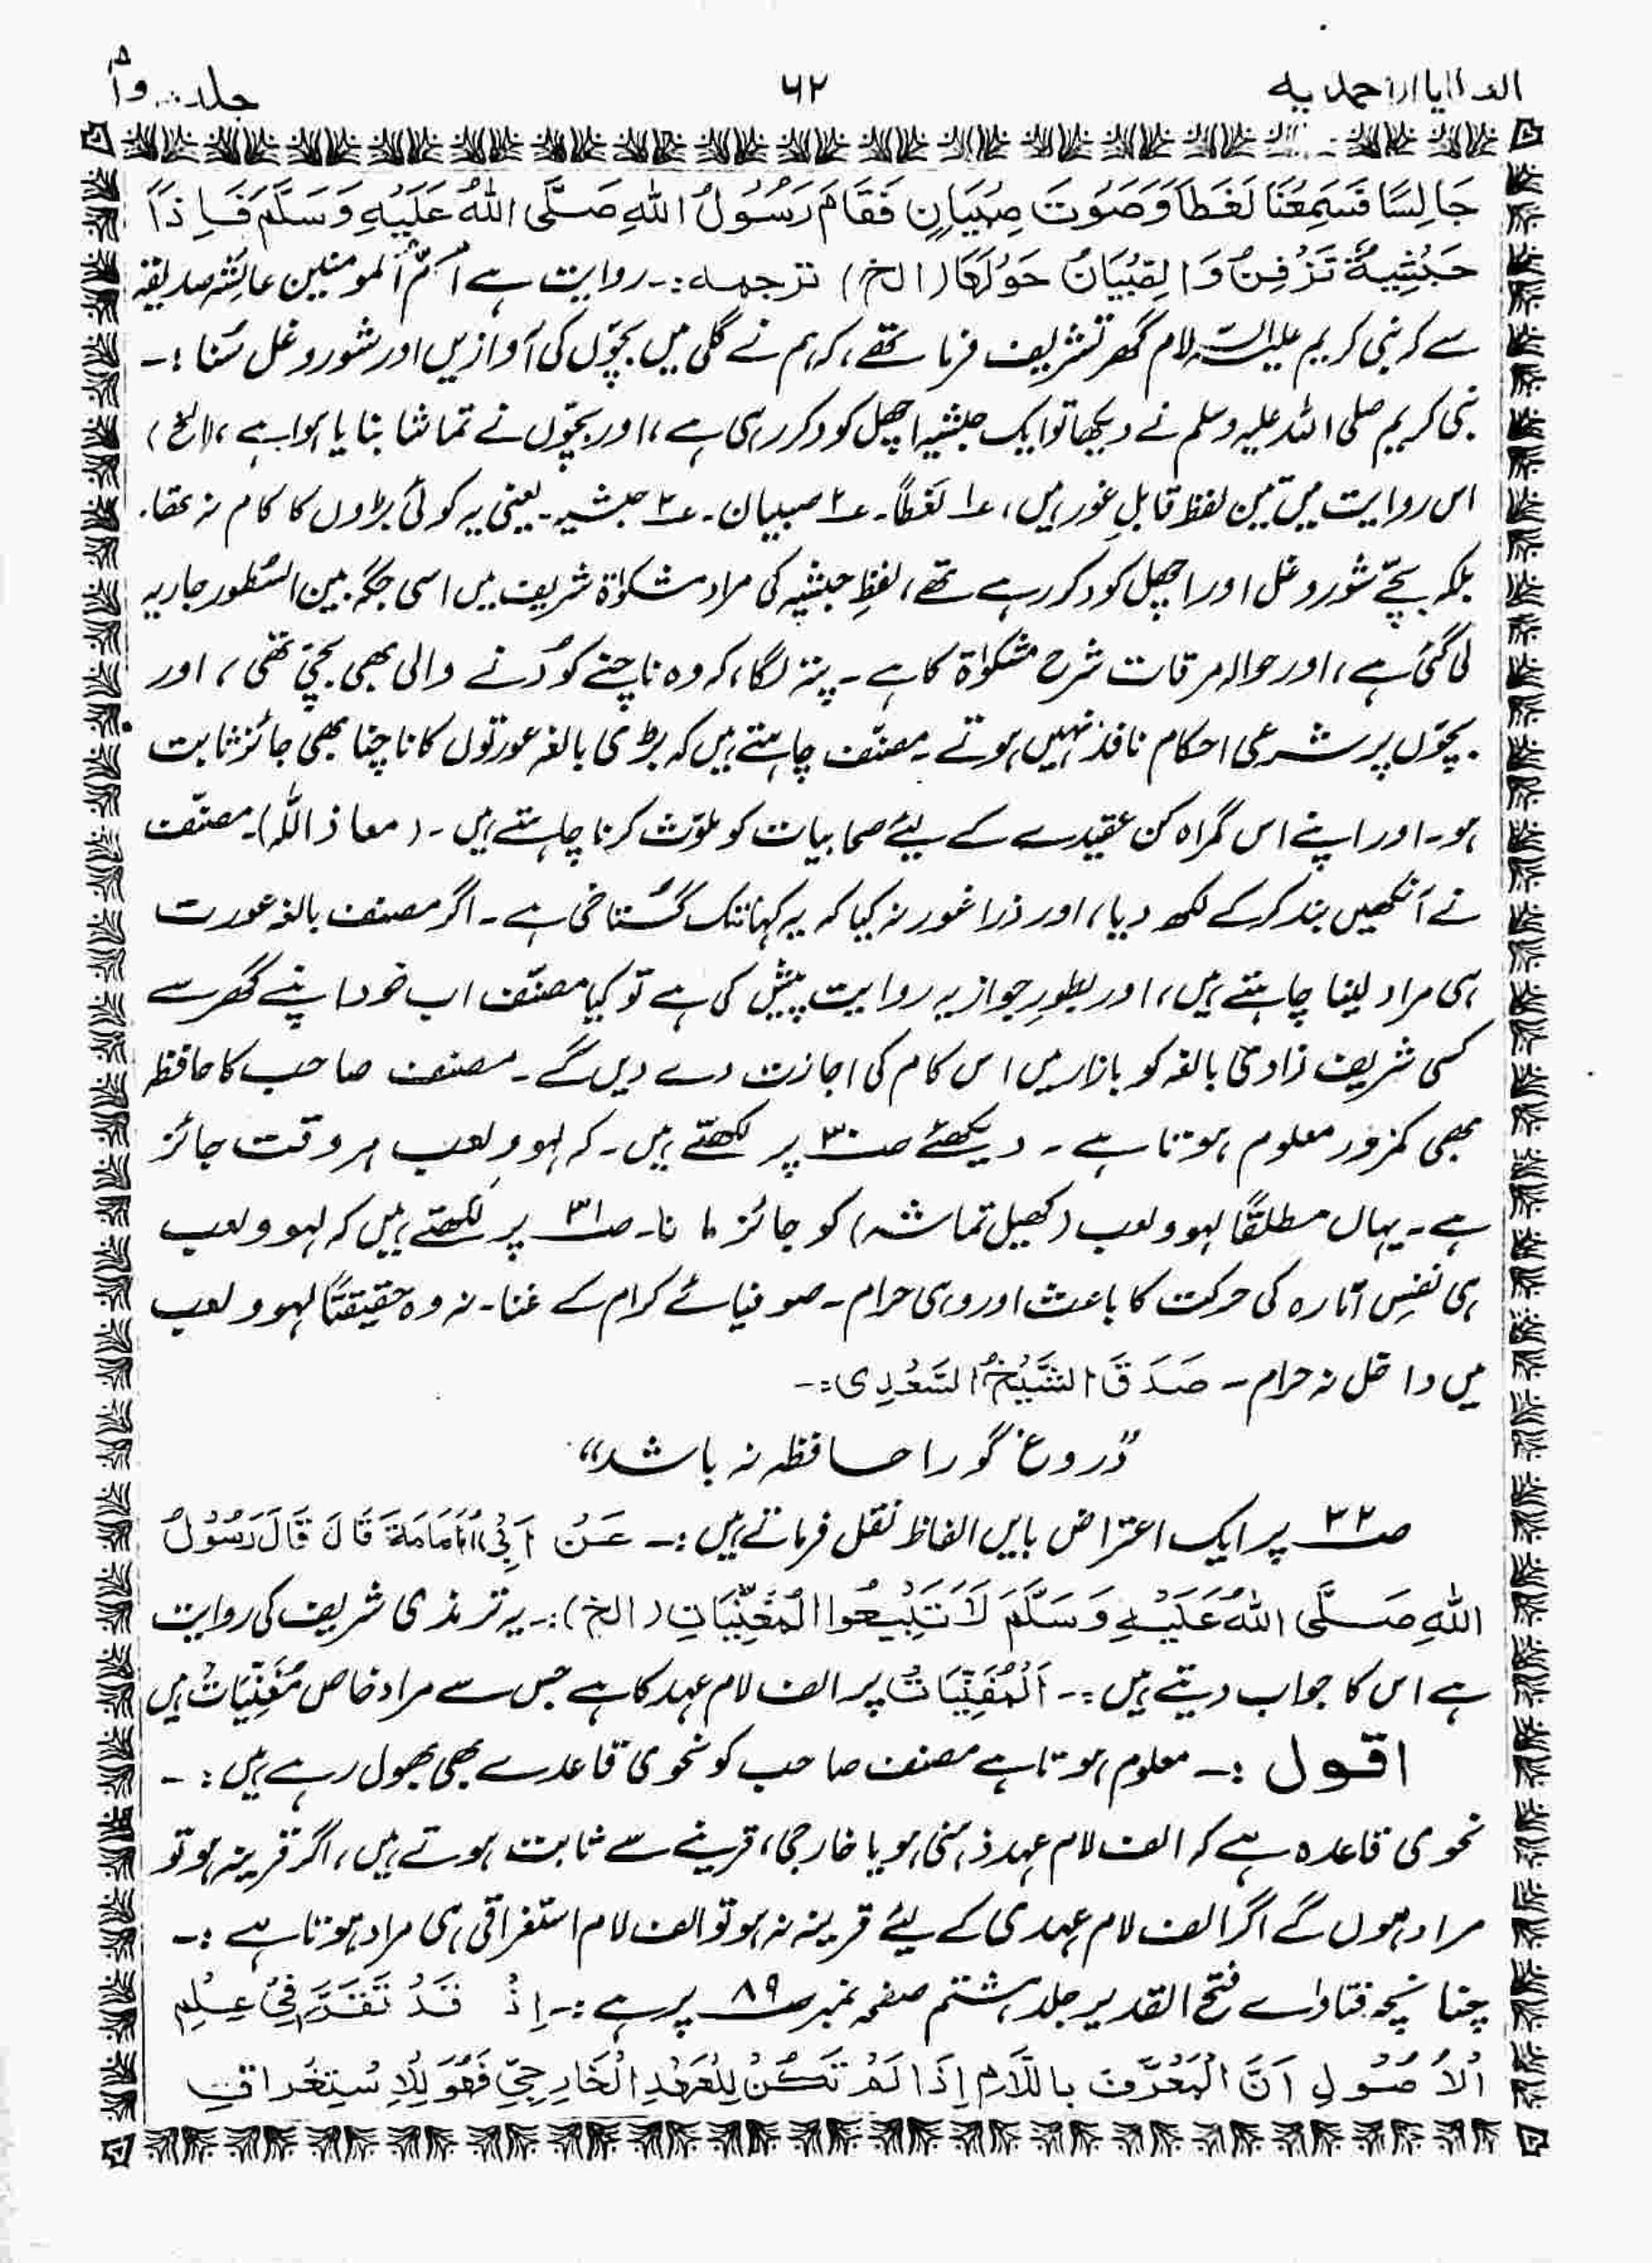 العطايا الاحمديه ۶۲ جلد دوم
جَالِسًا فَسَمِعْنَا لَغَطًا وَصَوْتَ صِبْيَانٍ فَقَامَ رَسُوْلُ اللهِ صَلَّى اللهُ عَلَيْهِ وَسَلَّمَ فَاِذَا
حَبْشِيَةٌ تَزْفِنُ وَالصِّبْيَانُ حَوْلَهَا (الخ) ترجمہ:۔ روایت ہے اُمُّ المومنین عائشہ صدیقہ
سے کہ نبی کریم علیہ السلام گھر تشریف فرما تھے، کہ ہم نے گلی میں بچّوں کی آوازیں اور شور و غل سُنا :۔
نبی کریم صلی اللہ علیہ وسلم نے دیکھا تو ایک حبشیہ اچھل کود کر رہی ہے، اور بچّوں نے تماشا بنایا ہوا ہے، (الخ)
اس روایت میں تین لفظ قابلِ غور ہیں، ۱؎ لَغَطًا۔ ۲؎ صبیان۔ ۳؎ حبشیہ۔ یعنی یہ کوئی بڑوں کا کام نہ تھا۔
بلکہ بچّے شور و غل اور اچھل کود کر رہے تھے، لفظِ حبشیہ کی مراد مشکوٰۃ شریف میں اسی جگہ بین السُّطور جاریہ
لی گئی ہے، اور حوالہ مرقات شرح مشکوٰۃ کا ہے۔ پتہ لگا، کہ وہ ناچنے کُودنے والی بھی بچّی تھی، اور
بچّوں پر شرعی احکام نافذ نہیں ہوتے۔ مصنّف چاہتے ہیں کہ بڑی بالغہ عورتوں کا ناچنا بھی جائز ثابت
ہو۔ اور اپنے اس گمراہ کن عقیدے کے لیئے صحابیات کو ملوّث کرنا چاہتے ہیں۔ (معاذ اللہ)۔ مصنّف
نے آنکھیں بند کر کے لکھ دیا، اور ذرا غور نہ کیا کہ یہ کہاں تک گُستاخی ہے۔ اگر مصنف بالغہ عورت
ہی مراد لینا چاہتے ہیں، اور بطورِ جواز یہ روایت پیش کی ہے تو کیا مصنّف اب خود اپنے گھر سے
کسی شریف زادی بالغہ کو بازار میں اس کام کی اجازت دے دیں گے۔ مصنف صاحب کا حافظہ
بھی کمزور معلوم ہوتا ہے۔ دیکھئے صـ۳۰ پر لکھتے ہیں۔ کہ لہو و لعب ہر وقت جائز
ہے۔ یہاں مطلقًا لہو و لعب (کھیل تماشہ) کو جائز مانا۔ صـ۳۱ پر لکھتے ہیں کہ لہو و لعب
ہی نفسِ امّارہ کی حرکت کا باعث اور وہی حرام۔ صوفیائے کرام کے غنا۔ نہ وہ حقیقتًا لہو و لعب
میں داخل نہ حرام۔ صَدَقَ الشَّيْخُ السَّعْدِی:۔
”دُروغ گو را حافظہ نہ باشد“
صـ۳۲ پر ایک اعتراض بایں الفاظ نقل فرماتے ہیں :۔ عَنْ اَبِیْ اُمَامَةَ قَالَ قَالَ رَسُوْلُ
اللهِ صَلَّى اللهُ عَلَيْهِ وَسَلَّمَ لَا تَبِيْعُوا الْمُغَنِّيَاتِ (الخ):۔ یہ ترمذی شریف کی روایت
ہے اس کا جواب دیتے ہیں :۔ اَلْمُغَنِّيَاتُ پر الف لام عہد کا ہے جس سے مراد خاص مُغَنِّيَاتُ ہیں
اقول :۔ معلوم ہوتا ہے مصنف صاحب کو نحوی قاعدے بھی بھول رہے ہیں :۔
نحوی قاعدہ ہے کہ الف لام عہد ذہنی ہو یا خارجی، قرینے سے ثابت ہوتے ہیں، اگر قرینہ ہو تو
مراد ہوں گے اگر الف لام عہدی کے لیئے قرینہ نہ ہو تو الف لام استغراقی ہی مراد ہوتا ہے :۔
چنانچہ فتاوٰے فتح القدیر جلد ہشتم صفحہ نمبر صـ۸۹ پر ہے :۔ اِذْ قَدْ تَقَدَّمَ فِیْ عِلْمِ
الْاُصُوْلِ اَنَّ الْمُعَرَّفَ بِاللَّامِ اِذَا لَمْ تَكُنْ لِلْعَهْدِ الْخَارِجِيِّ فَهُوَ لِلْاِسْتِغْرَاقِ